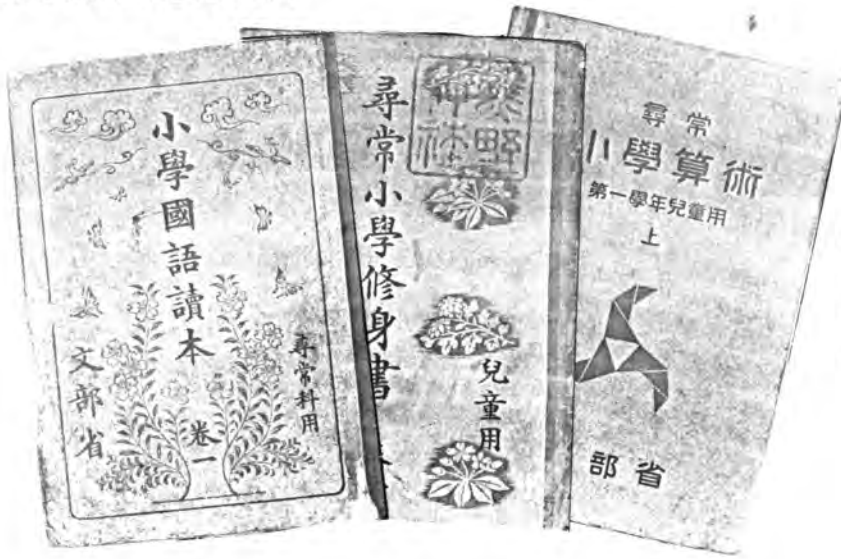 小學國語讀本
尋常科用
卷一
文部省
尋常小學修身書
兒童用
尋常
小學算術
第一學年兒童用
上
部省